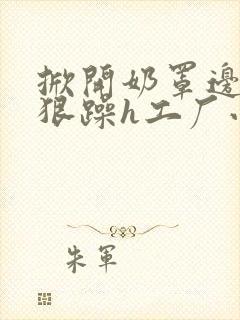 掀開奶罩邊
狠躁h工厂
朱軍